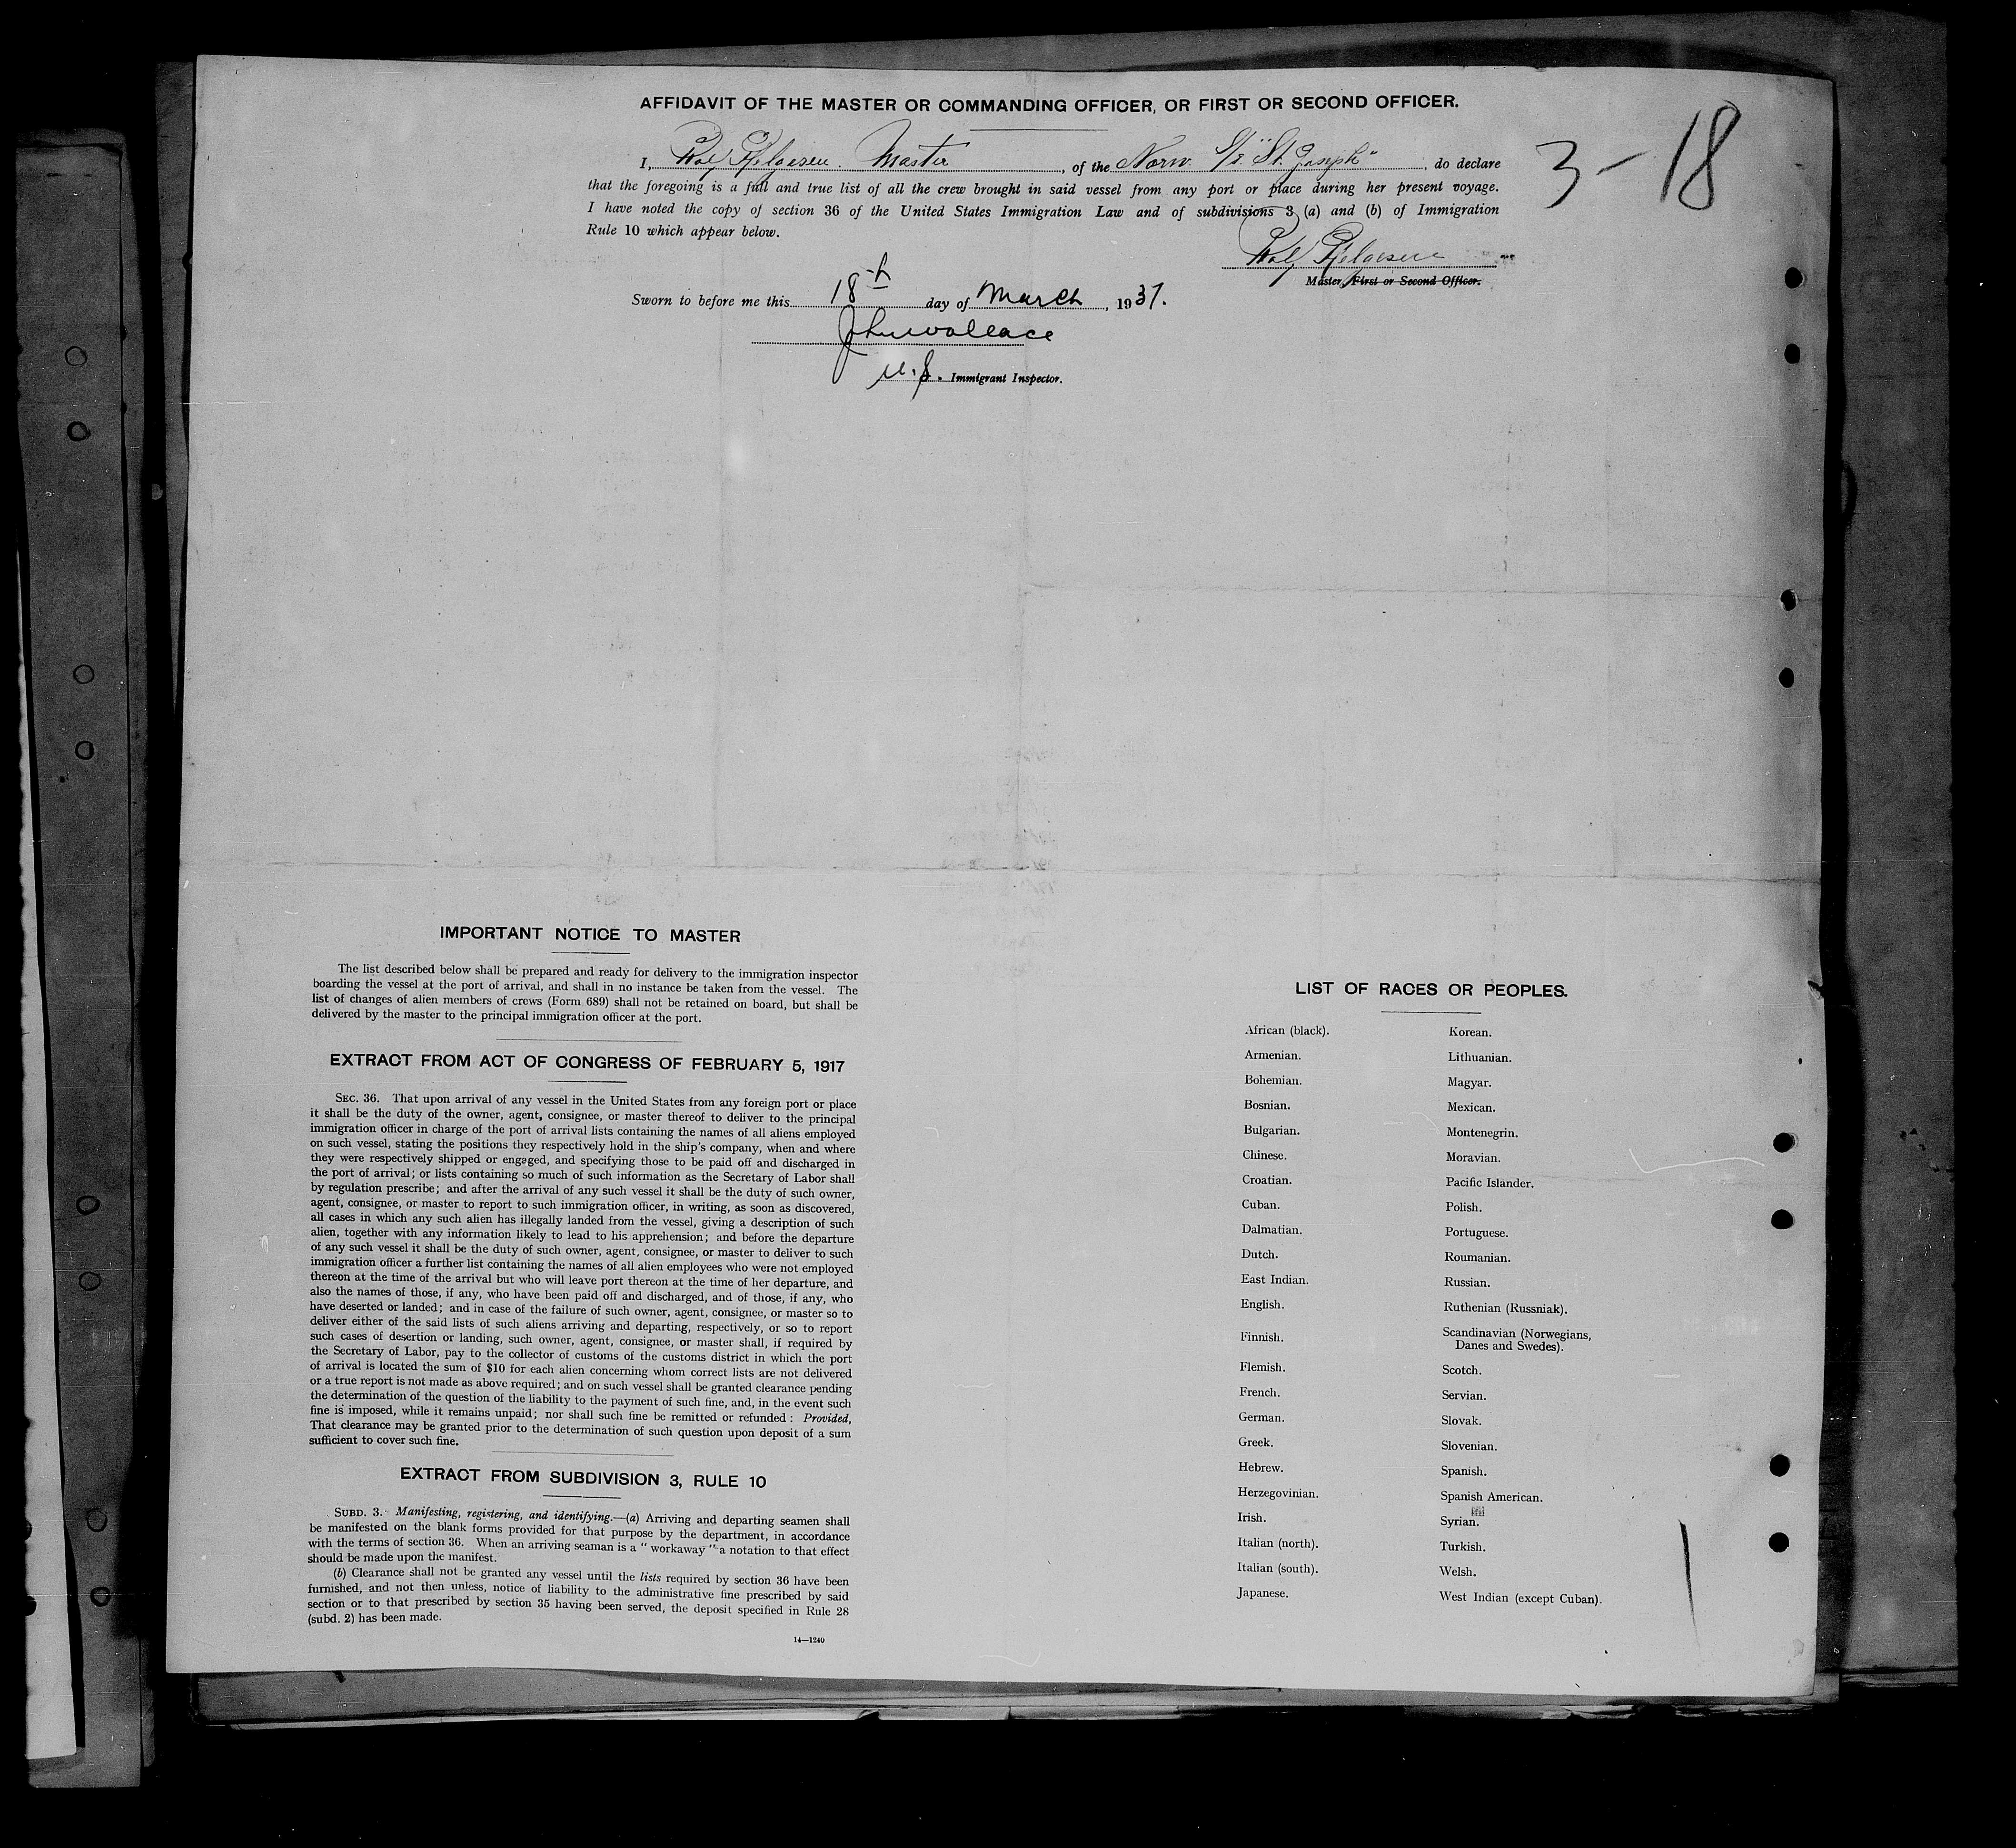 AFFIDAVIT OF THE MASTER OR COMMANDING OFFICER, OR FIRST OR SECOND OFFICER.
3 - 18
I, Master, of the Norw. "St. Joseph", do declare
that the foregoing is a full and true list of all the crew brought in said vessel from any port or place during her present voyage.
I have noted the copy of section 36 of the United States Immigration Law and of subdivisions 3 (a) and (b) of Immigration
Rule 10 which appear below.
Master, First or Second Officer.
Sworn to before me this 18th day of March, 1937.
Jhnwallace
U.S. Immigrant Inspector.
IMPORTANT NOTICE TO MASTER
The list described below shall be prepared and ready for delivery to the immigration inspector
boarding the vessel at the port of arrival, and shall in no instance be taken from the vessel. The
list of changes of alien members of crews (Form 689) shall not be retained on board, but shall be
delivered by the master to the principal immigration officer at the port.
EXTRACT FROM ACT OF CONGRESS OF FEBRUARY 5, 1917
SEC. 36. That upon arrival of any vessel in the United States from any foreign port or place
it shall be the duty of the owner, agent, consignee, or master thereof to deliver to the principal
immigration officer in charge of the port of arrival lists containing the names of all aliens employed
on such vessel, stating the positions they respectively hold in the ship's company, when and where
they were respectively shipped or engaged, and specifying those to be paid off and discharged in
the port of arrival; or lists containing so much of such information as the Secretary of Labor shall
by regulation prescribe; and after the arrival of any such vessel it shall be the duty of such owner,
agent, consignee, or master to report to such immigration officer, in writing, as soon as discovered,
all cases in which any such alien has illegally landed from the vessel, giving a description of such
alien, together with any information likely to lead to his apprehension; and before the departure
of any such vessel it shall be the duty of such owner, agent, consignee, or master to deliver to such
immigration officer a further list containing the names of all alien employees who were not employed
thereon at the time of the arrival but who will leave port thereon at the time of her departure, and
also the names of those, if any, who have been paid off and discharged, and of those, if any, who
have deserted or landed; and in case of the failure of such owner, agent, consignee, or master so to
deliver either of the said lists of such aliens arriving and departing, respectively, or so to report
such cases of desertion or landing, such owner, agent, consignee, or master shall, if required by
the Secretary of Labor, pay to the collector of customs of the customs district in which the port
of arrival is located the sum of $10 for each alien concerning whom correct lists are not delivered
or a true report is not made as above required; and on such vessel shall be granted clearance pending
the determination of the question of the liability to the payment of such fine, and, in the event such
fine is imposed, while it remains unpaid; nor shall such fine be remitted or refunded: Provided,
That clearance may be granted prior to the determination of such question upon deposit of a sum
sufficient to cover such fine.
EXTRACT FROM SUBDIVISION 3, RULE 10
SUBD. 3. Manifesting, registering, and identifying.—(a) Arriving and departing seamen shall
be manifested on the blank forms provided for that purpose by the department, in accordance
with the terms of section 36. When an arriving seaman is a "workaway" a notation to that effect
should be made upon the manifest.
(b) Clearance shall not be granted any vessel until the lists required by section 36 have been
furnished, and not then unless, notice of liability to the administrative fine prescribed by said
section or to that prescribed by section 35 having been served, the deposit specified in Rule 28
(subd. 2) has been made.
14—1240
LIST OF RACES OR PEOPLES.
African (black).
Armenian.
Bohemian.
Bosnian.
Bulgarian.
Chinese.
Croatian.
Cuban.
Dalmatian.
Dutch.
East Indian.
English.
Finnish.
Flemish.
French.
German.
Greek.
Hebrew.
Herzegovinian.
Irish.
Italian (north).
Italian (south).
Japanese.
Korean.
Lithuanian.
Magyar.
Mexican.
Montenegrin.
Moravian.
Pacific Islander.
Polish.
Portuguese.
Roumanian.
Russian.
Ruthenian (Russniak).
Scandinavian (Norwegians,
Danes and Swedes).
Scotch.
Servian.
Slovak.
Slovenian.
Spanish.
Spanish American.
Syrian.
Turkish.
Welsh.
West Indian (except Cuban).